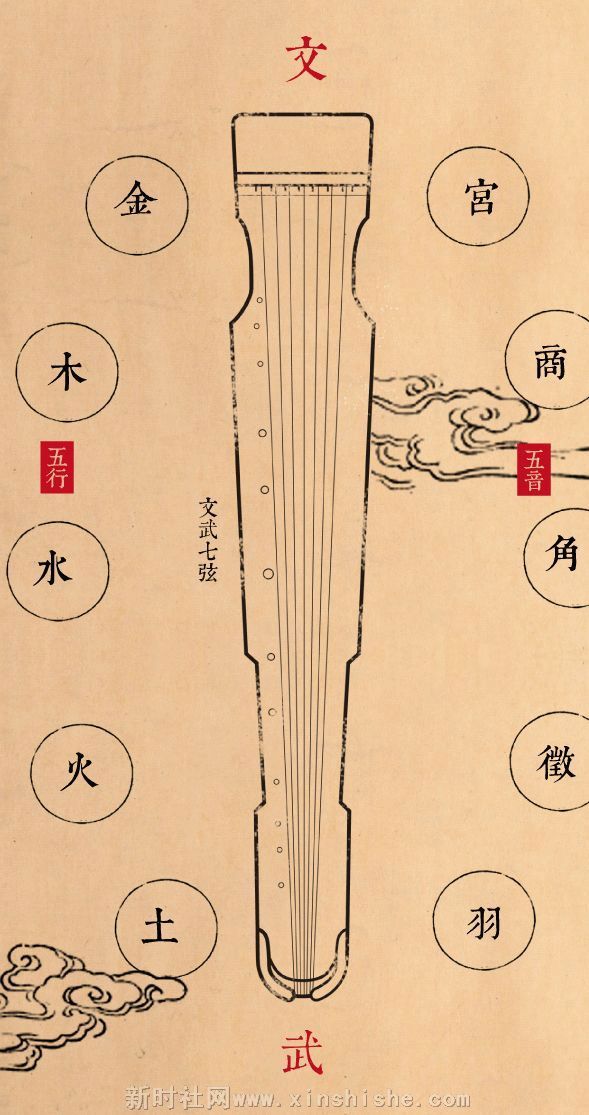 文
金
木
五行
水
火
土
文武七弦
宮
商
五音
角
徵
羽
武
新时社网www.xinshishe.com